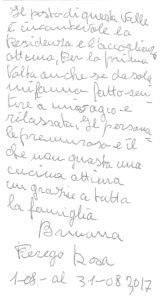 Il posto di questa Valle
è incantevole la
Residenza e l'accoglienza
ottima, Per la prima
volta anche se da sola
mi fanno fatto sen-
tire a mio agio e
rilassata, Il persona
le premuroso e il
che non guasta una
cucina ottima
un grazie a tutta
la famiglia
Bruna
Ferego Rosa
1-08- al 31-08 2017